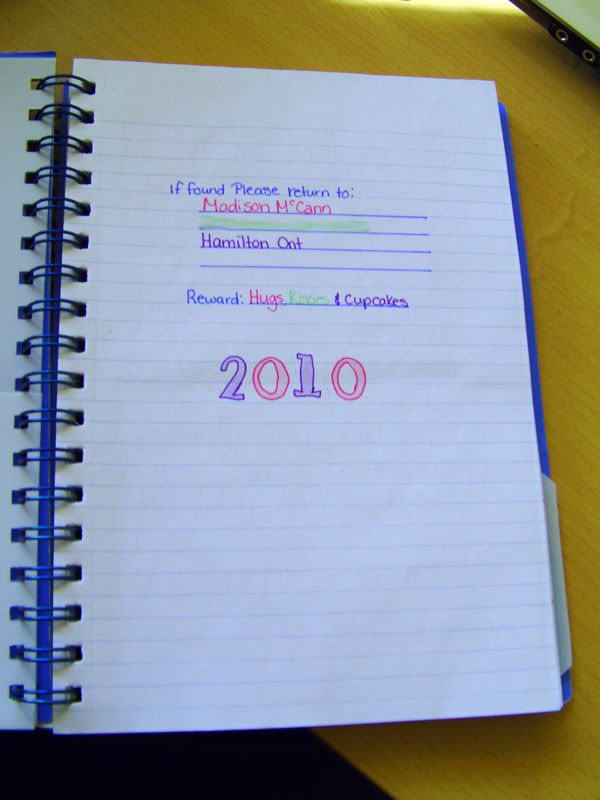 If found Please return to:
Madison McCann
Hamilton Ont
Reward: Hugs Kisses & Cupcakes
2010